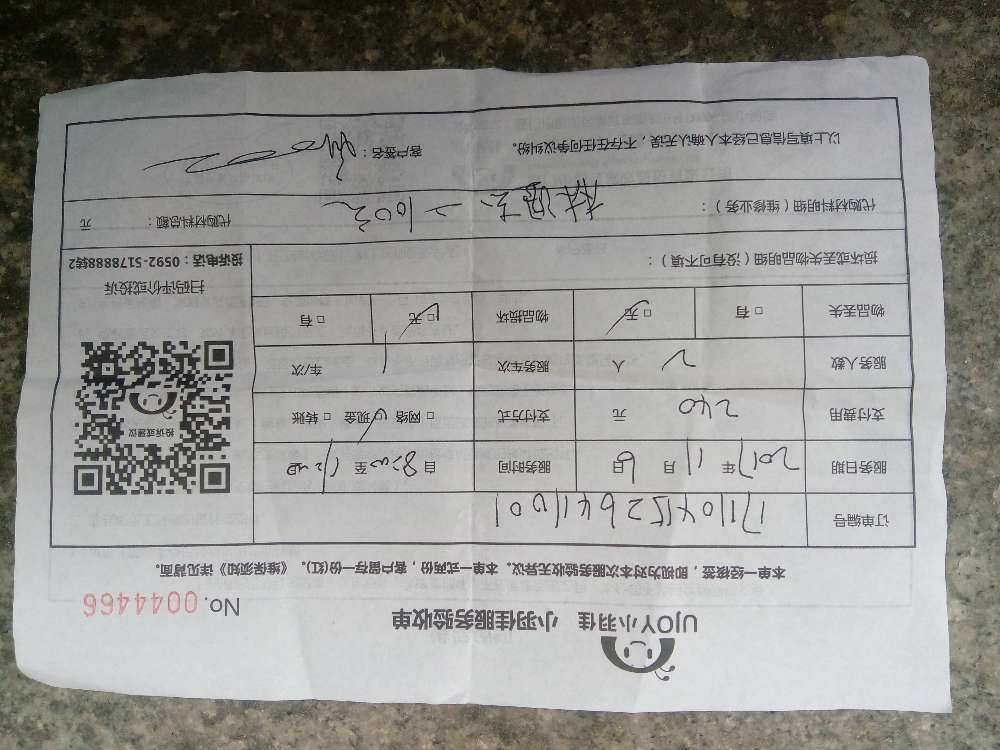 UJOY小羽佳 小羽佳服务验收单
No. 0044466
本单一经核签，即视为对本次服务验收无异议。本单一式两份，客户留存一份(红)。《维保须知》详见背面。
订单编号 1711041526411001
服务日期 2017年11月6日 服务时间 自8:00至12:00
支付费用 240元 支付方式 □网络 ☑现金 □转账
服务人数 2人 服务车次 1车/次
物品丢失 □有 ☑无 物品损坏 ☑无 □有
投诉或建议
扫码评价或投诉
投诉电话：0592-5178888转2
损坏或丢失物品明细（没有可不填）：
代购材料明细（维修业务）：
代购材料总额： 元
以上填写信息已经本人确认无误，不存在任何争议纠纷。
客户签名：